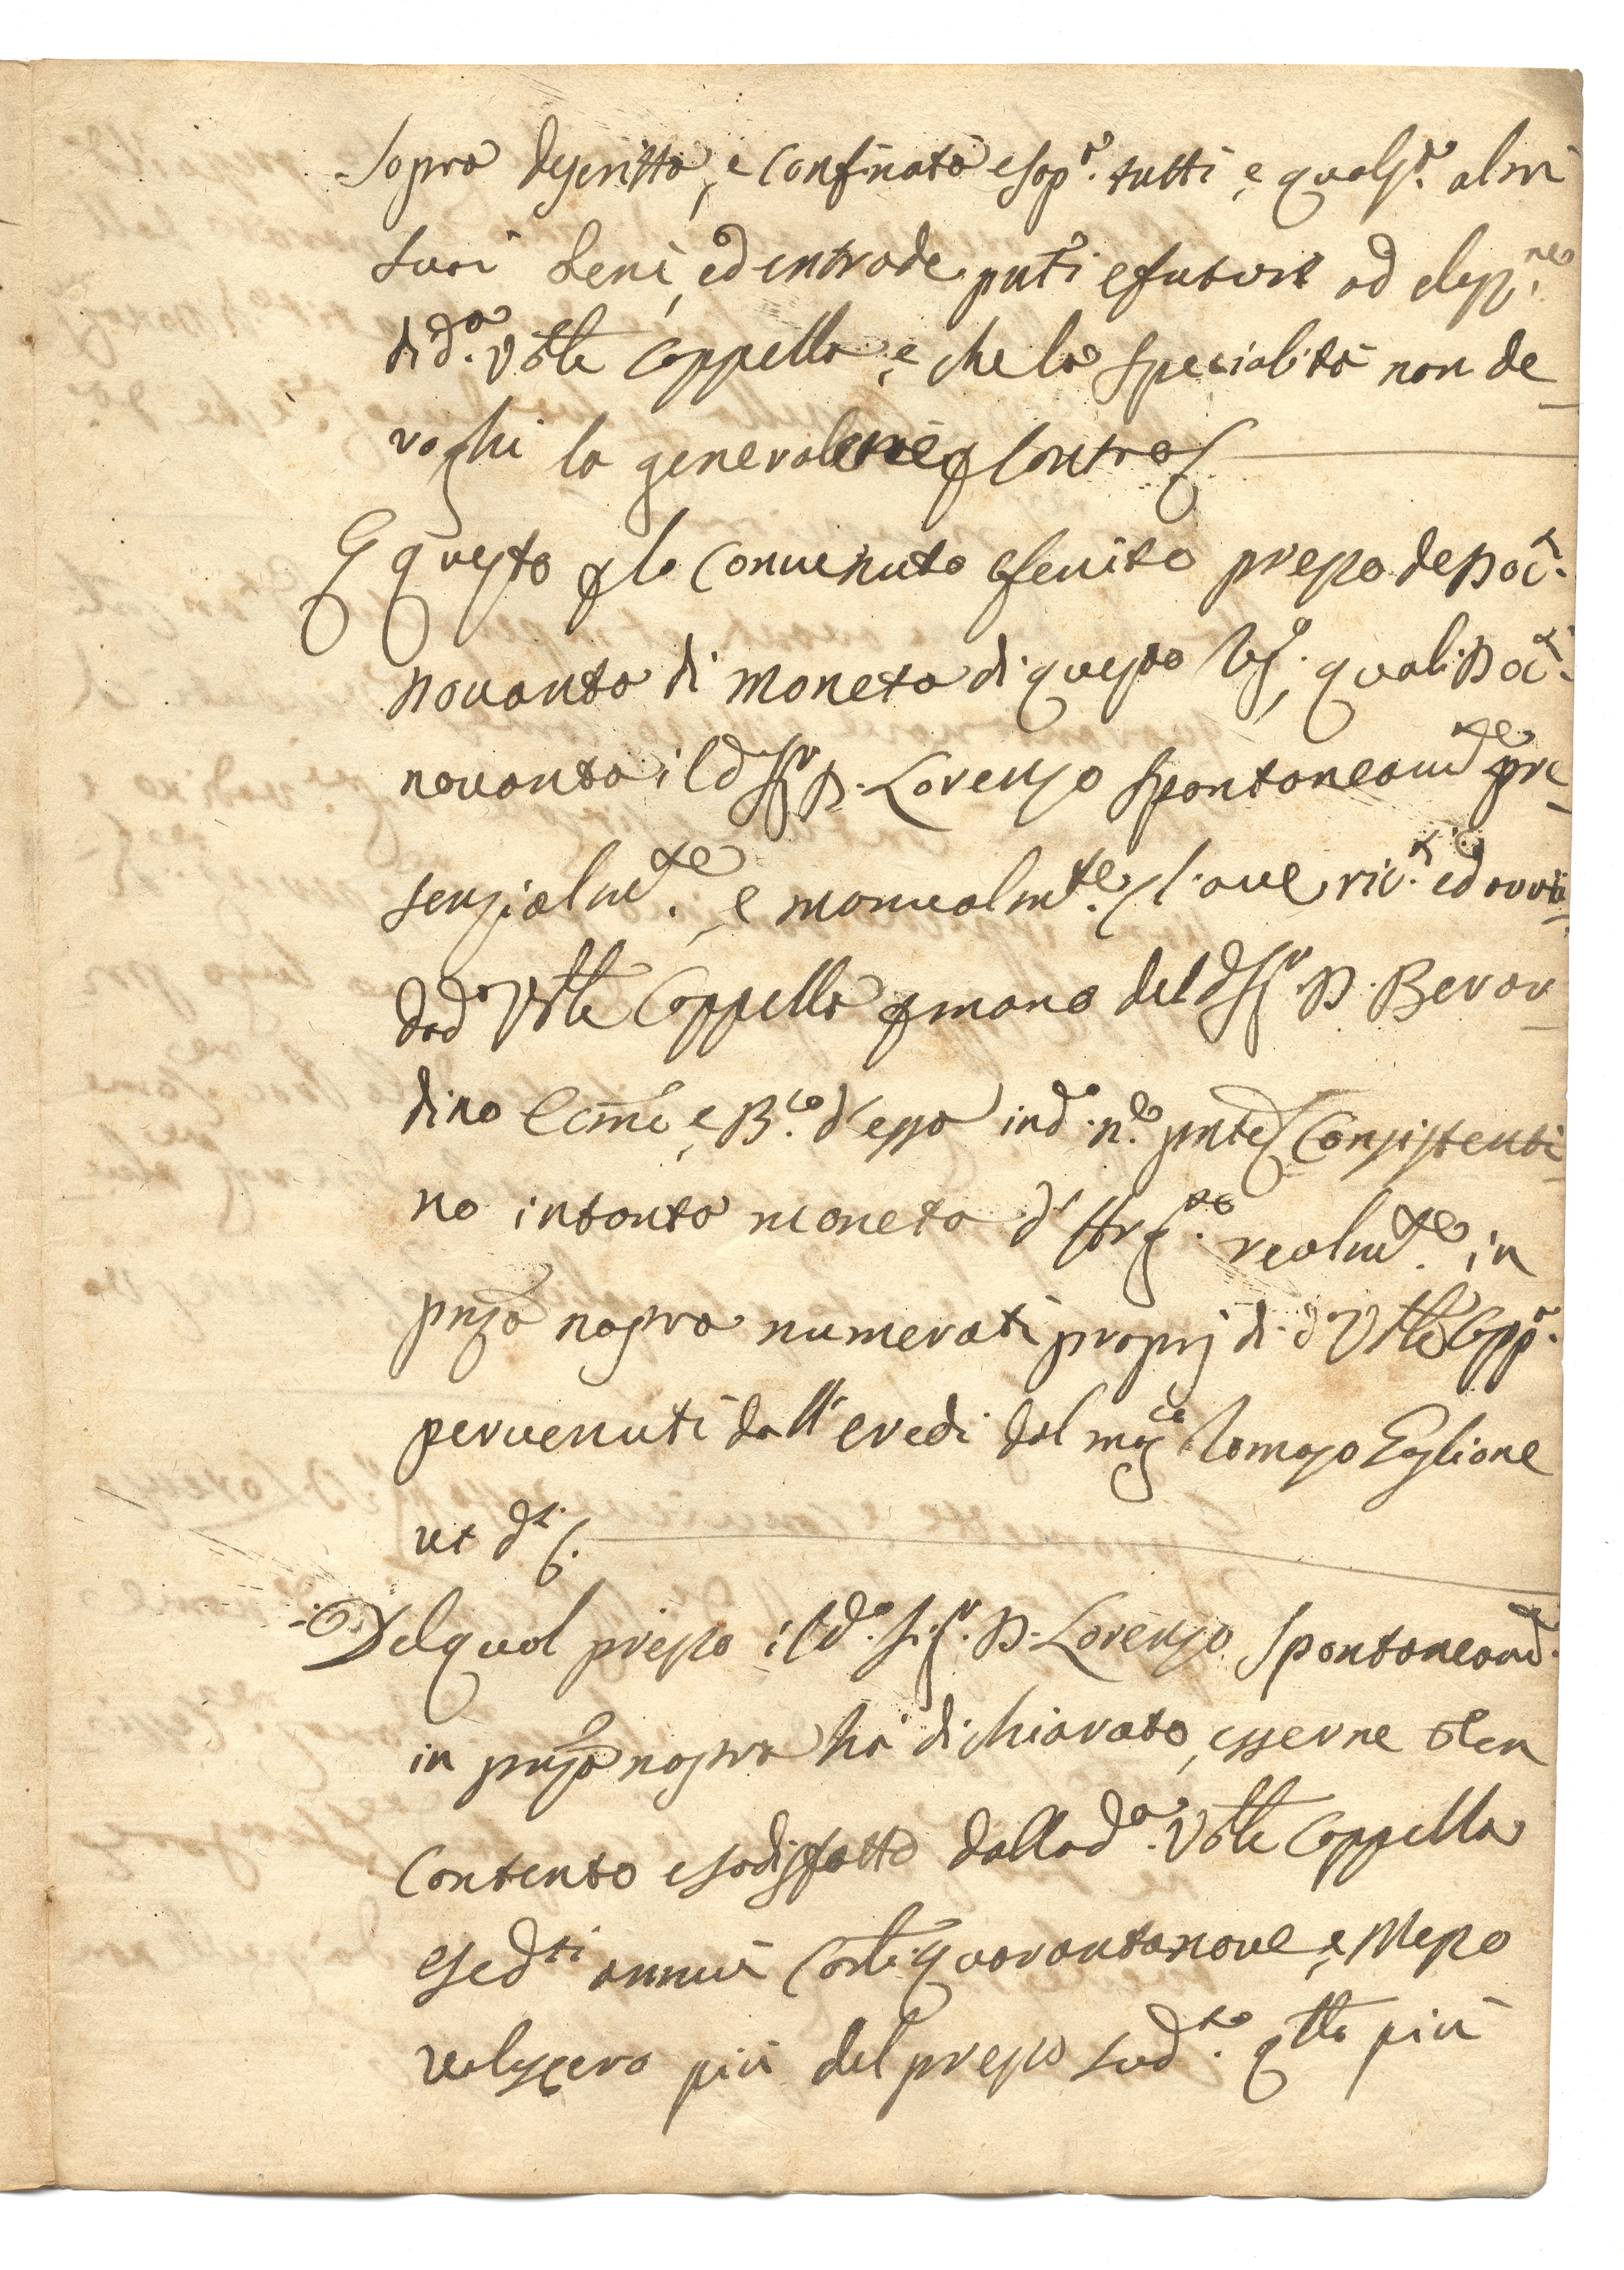 sopra descritto, e confinato e sop.ª tutti, e quals.ª altri
suoi beni, ed entrade pnti e futuri ad elez.ne
di d.ª Vble Cappella, e che la specialità non de
roghi la generalità nè per contra
E questo per lo convenuto e finito prezzo de Doc.ti
novanta di moneta di questo Re.º, quali Doc.ti
novanta il d.º Sig.r D. Lorenzo spontaneamte pre
senzialm.te, e manualm.te ave ric.ti ed avuti
da d.ª Vble Cappella per mano del d.º Sig.r D. Berar
dino Ecmo e B.co d'essa ind.º n.e pnte Consistenti
no intanta moneta d'Arg.to realm.te in
pnza nostra numerati proprj di d.ª Vble Capp.ª
pervenuti dall'eredi del mag.co Tomaso Eglione
ut d.r
Del qual prezzo il d.º Sig.r D. Lorenzo spontaneam.
in pnza nostra hà dichiarato, esserne ben
contento e sodisfatto dalla d.ª Vble Cappella
e se d.ti annui Carli quarantanove, e Mezo
valessero più del prezzo sud.to qtto più